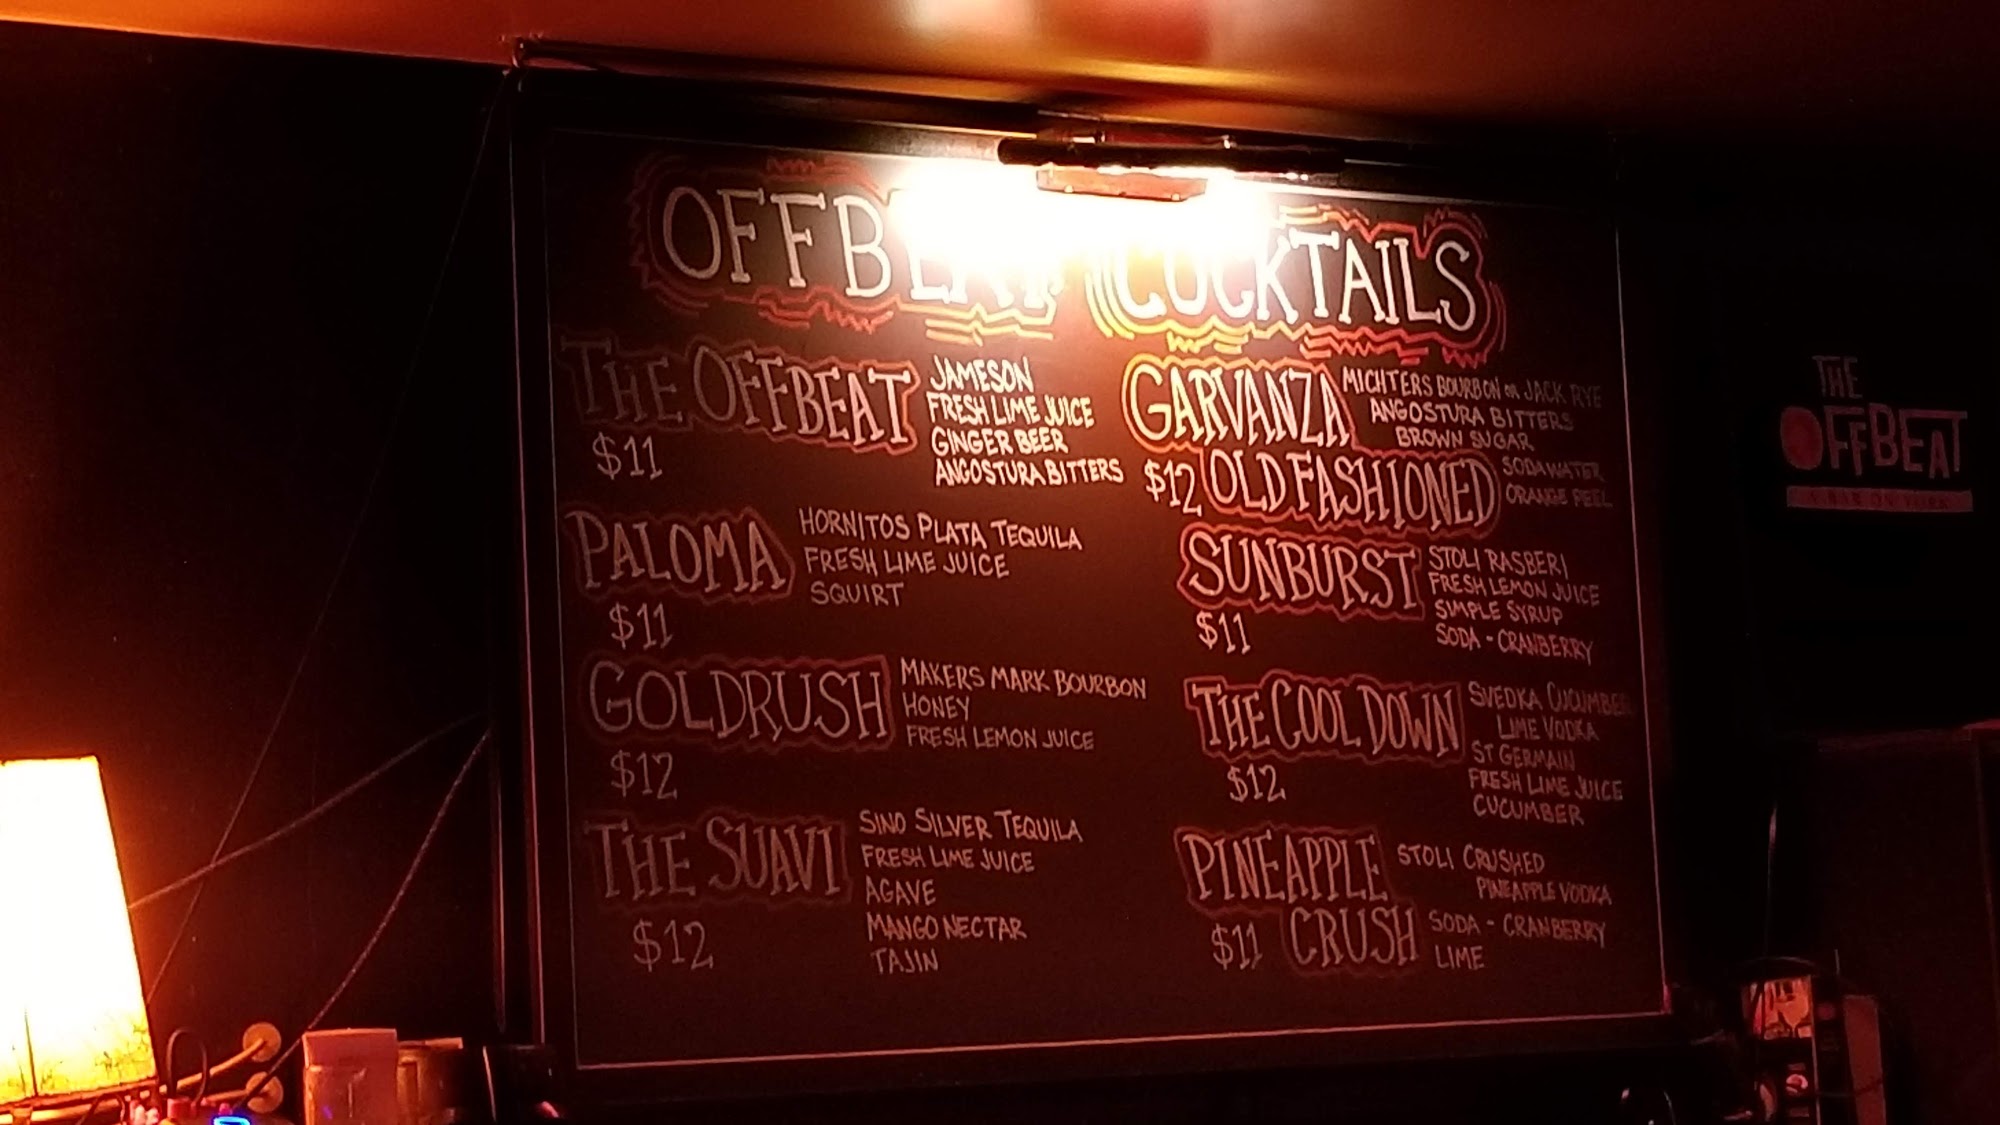 OFFBEAT COCKTAILS
THE OFFBEAT
$11
JAMESON
FRESH LIME JUICE
GINGER BEER
ANGOSTURA BITTERS
PALOMA
$11
HORNITOS PLATA TEQUILA
FRESH LIME JUICE
SQUIRT
GOLDRUSH
$12
MAKERS MARK BOURBON
HONEY
FRESH LEMON JUICE
THE SUAVI
$12
SINO SILVER TEQUILA
FRESH LIME JUICE
AGAVE
MANGO NECTAR
TAJIN
GARVANZA
$12 OLD FASHIONED
MICHTERS BOURBON OR JACK RYE
ANGOSTURA BITTERS
BROWN SUGAR
SODA WATER
ORANGE PEEL
SUNBURST
$11
STOLI RASBERI
FRESH LEMON JUICE
SIMPLE SYRUP
SODA - CRANBERRY
THE COOL DOWN
$12
SVEDKA CUCUMBER
LIME VODKA
ST GERMAIN
FRESH LIME JUICE
CUCUMBER
PINEAPPLE
$11 CRUSH
STOLI CRUSHED
PINEAPPLE VODKA
SODA - CRANBERRY
LIME
THE
OFFBEAT